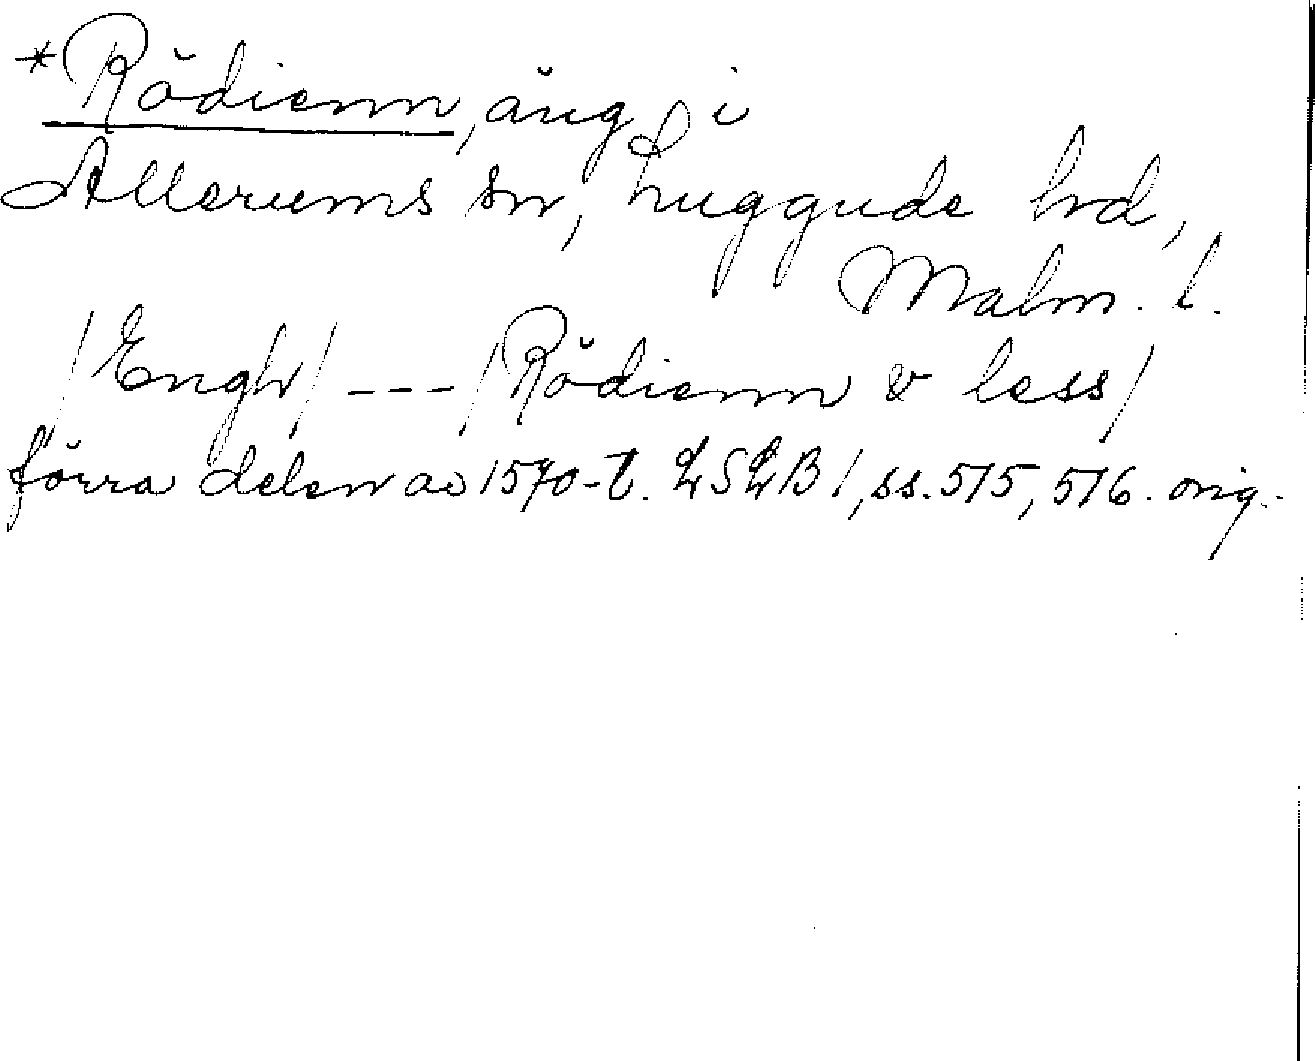 *Rödienn, äng i
Allerums sn, Luggude hrd,
Malm. l.
/Engh/ --- /Rödienn v less/
förra delen av 1570-t. LSLB 1, ss. 515, 516. orig.